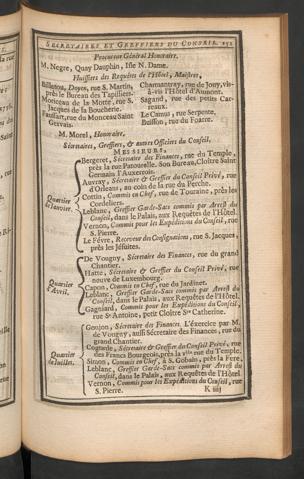 SECRETAIRES ET GREFFIERS DU CONSEIL. 151
Procureur Général Honoraire.
M. Negre, Quay Dauphin, Isle N. Dame.
Huissiers des Requêtes de l'Hôtel, Maîtres,
Billettou, Doyen, rue S. Martin,
près le Bureau des Tapissiers.
Moriceau de la Motte, rue S.
Jacques de la Boucherie.
Faussart, rue du Monceau Saint
Gervais.
Charmantray, rue de Jouy, vis-
à-vis l'Hôtel d'Aumont.
Sagand, rue des petits Car-
reaux.
Le Camus, rue Serpente,
Buisson, rue du Foarre.
M. Morel, Honoraire,
Sécretaires, Greffiers, & autres Officiers du Conseil,
MESSIEURS,
Quartier
de Janvier.
Bergeret, Sécretaire des Finances, rue du Temple,
près la rue Patourelle. Son Bureau, Cloître Saint
Germain l'Auxerrois.
Auvray, Sécretaire & Greffier du Conseil Privé, rue
d'Orleans, au coin de la rue du Perche.
Cottin, Commis en Chef, rue de Touraine, près les
Cordeliers.
Leblanc, Greffier Garde-Sacs commis par Arrest du
Conseil, dans le Palais, aux Requêtes de l'Hôtel.
Vernon, Commis pour les Expéditions du Conseil, rue
S. Pierre.
Le Févre, Receveur des Consignations, rue S. Jacques,
près les Jésuites.
Quartier
d'Avril.
De Vougny, Sécretaire des Finances, rue du grand
Chantier.
Hatte, Sécretaire & Greffier du Conseil Privé, rue
neuve de Luxembourg.
Capon, Commis en Chef, rue du Jardinet.
Leblanc, Greffier Garde-Sacs commis par Arrest du
Conseil, dans le Palais, aux Requêtes de l'Hôtel.
Gagniard, Commis pour les Expéditions du Conseil,
rue St Antoine, petit Cloître Ste Catherine.
Quartier
de Juillet.
Goujon, Sécretaire des Finances. L'éxercice par M.
de Vougny, aussi Sécretaire des Finances, rue du
grand Chantier.
Cogorde, Sécretaire & Greffier du Conseil Privé, rue
des Francs Bourgeois, près la vlle rue du Temple.
Simon, Commis en Chef, à S. Gobain, près la Fere,
Leblanc, Greffier Garde-Sacs commis par Arrest du
Conseil, dans le Palais, aux Requêtes de l'Hôtel
Vernon, Commis pour les Expéditions du Conseil, rue
S. Pierre.
K iiij